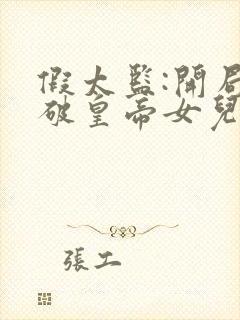 假太監:開局
破皇帝女兒
張工